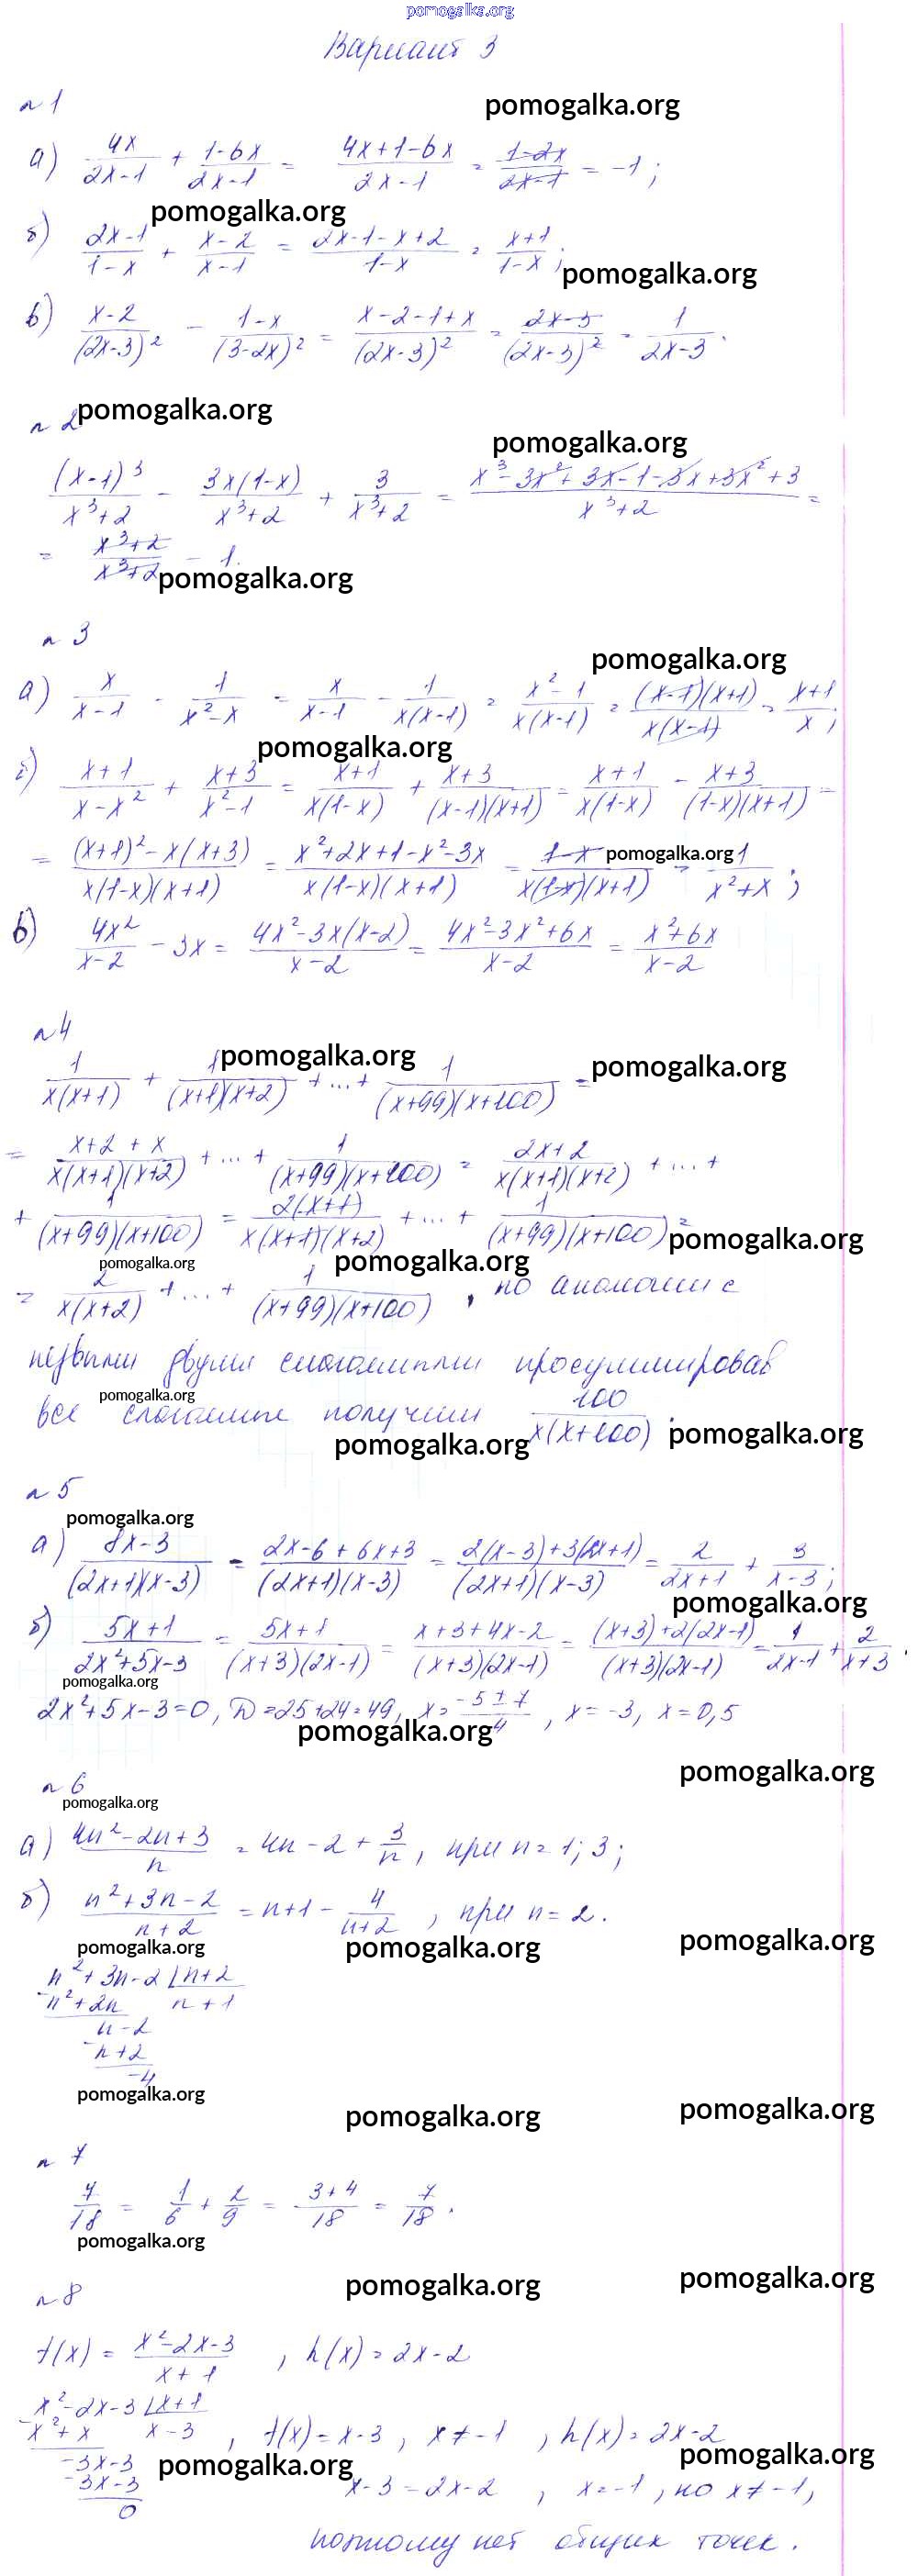 pomogalka.org
Вариант 3
n 1
pomogalka.org
а) 4x/(2x-1) + (1-6x)/(2x-1) = (4x+1-6x)/(2x-1) = (1-2x)/(2x-1) = -1;
pomogalka.org
б) (2x-1)/(1-x) + (x-2)/(x-1) = (2x-1-x+2)/(1-x) = (x+1)/(1-x);
pomogalka.org
в) (x-2)/(2x-3)² - (1-x)/(3-2x)² = (x-2-1+x)/(2x-3)² = (2x-3)/(2x-3)² = 1/(2x-3).
n 2
pomogalka.org
pomogalka.org
(x-1)³/(x³+2) - 3x(1-x)/(x³+2) + 3/(x³+2) = (x³-3x²+3x-1-3x+3x²+3)/(x³+2) =
= (x³+2)/(x³+2) = 1.
pomogalka.org
n 3
pomogalka.org
а) x/(x-1) - 1/(x²-x) = x/(x-1) - 1/(x(x-1)) = (x²-1)/(x(x-1)) = (x-1)(x+1)/(x(x-1)) = (x+1)/x;
pomogalka.org
б) (x+1)/(x-x²) + (x+3)/(x²-1) = (x+1)/(x(1-x)) + (x+3)/((x-1)(x+1)) = (x+1)/(x(1-x)) - (x+3)/((1-x)(x+1)) =
= ((x+1)²-x(x+3))/(x(1-x)(x+1)) = (x²+2x+1-x²-3x)/(x(1-x)(x+1)) = (1-x)/(x(1-x)(x+1)) = 1/(x²+x);
pomogalka.org
в) 4x²/(x-2) - 3x = (4x²-3x(x-2))/(x-2) = (4x²-3x²+6x)/(x-2) = (x²+6x)/(x-2)
n 4
pomogalka.org
pomogalka.org
1/(x(x+1)) + 1/((x+1)(x+2)) + ... + 1/((x+99)(x+100)) =
= (x+2+x)/(x(x+1)(x+2)) + ... + 1/((x+99)(x+100)) = (2x+2)/(x(x+1)(x+2)) + ... +
+ 1/((x+99)(x+100)) = 2(x+1)/(x(x+1)(x+2)) + ... + 1/((x+99)(x+100)) =
pomogalka.org
pomogalka.org
pomogalka.org
= 2/(x(x+2)) + ... + 1/((x+99)(x+100)), по аналогии с
первыми двумя слагаемыми просуммировав
pomogalka.org
все слагаемые получим 100/(x(x+100)).
pomogalka.org
pomogalka.org
n 5
pomogalka.org
а) (8x-3)/((2x+1)(x-3)) = (2x-6+6x+3)/((2x+1)(x-3)) = (2(x-3)+3(2x+1))/((2x+1)(x-3)) = 2/(2x+1) + 3/(x-3);
pomogalka.org
б) (5x+1)/(2x²+5x-3) = (5x+1)/((x+3)(2x-1)) = (x+3+4x-2)/((x+3)(2x-1)) = ((x+3)+2(2x-1))/((x+3)(2x-1)) = 1/(2x-1) + 2/(x+3).
pomogalka.org
2x²+5x-3=0, D=25+24=49, x=(-5±7)/4, x=-3, x=0,5
pomogalka.org
pomogalka.org
n 6
pomogalka.org
а) (4n²-2n+3)/n = 4n-2+3/n, при n=1; 3;
б) (n²+3n-2)/(n+2) = n+1 - 4/(n+2), при n=2.
pomogalka.org
pomogalka.org
pomogalka.org
n²+3n-2 | n+2
-n²+2n n+1
n-2
-n+2
-4
pomogalka.org
pomogalka.org
pomogalka.org
n 7
7/18 = 1/6 + 2/9 = (3+4)/18 = 7/18.
pomogalka.org
pomogalka.org
pomogalka.org
n 8
f(x) = (x²-2x-3)/(x+1), h(x) = 2x-2
x²-2x-3 | x+1
-x²+x x-3, f(x)=x-3, x≠-1, h(x)=2x-2
-3x-3
-3x-3
0
pomogalka.org
pomogalka.org
x-3=2x-2, x=-1, но x≠-1,
поэтому нет общих точек.